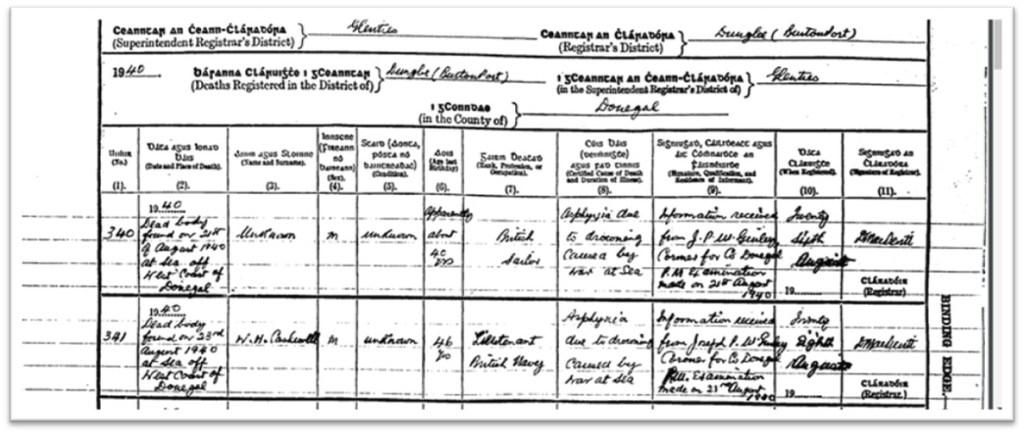 Ceanntar an Ceann-Cláradóra
(Superintendent Registrar's District)
Glenties
Ceanntar an Cláradóra
(Registrar's District)
Dungloe (Burtonport)
1940.
(Deaths Registered in the District of)
Dungloe (Burtonport)
i gCeanntar an Ceann-Cláradóra
(in the Superintendent Registrar's District of)
Glenties
i gConndae
(in the County of)
Donegal
(No.)
(1).
(Date and Place of Death).
(2).
(Name and Surname).
(3).
(Sex).
(4).
(Condition).
(5).
(Age last Birthday)
(6).
(Rank, Profession, or Occupation).
(7).
(Certified Cause of Death and Duration of Illness).
(8).
(Signature, Qualification, and Residence of Informant).
(9).
(When Registered).
(10).
(Signature of Registrar).
(11).
340
1940
Dead body
found on 21st
of August 1940
at Sea off
West Coast of
Donegal
Unknown
m
unknown
Apparently
about
40
yrs
British
Sailor
Asphyxia due
to drowning
caused by
war at Sea
Information received
from J. P. W.
Coroner for Co Donegal
P.M Examination
made on 21st August
1940
Twenty
Sixth
August
19
Cláradóir
(Registrar)
341
1940
Dead body
found on 23rd
August 1940
at Sea off
West Coast of
Donegal
W. H.
m
unknown
46
yrs
Lieutenant
British Navy
Asphyxia
due to drowning
caused by
war at Sea
Information received
from Joseph P. W.
Coroner for Co Donegal
P.M. Examination
made on 23rd August
1940
Twenty
Eighth
August
19
Cláradóir
(Registrar.)
BINDING EDGE.